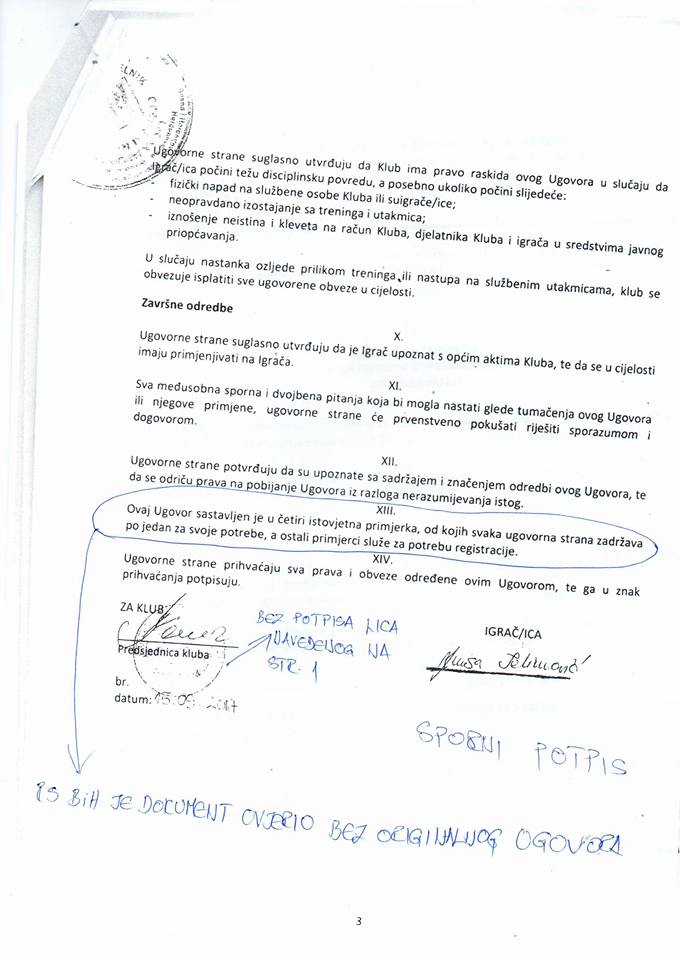 Ugovorne strane suglasno utvrđuju da Klub ima pravo raskida ovog Ugovora u slučaju da
Igrač/ica počini težu disciplinsku povredu, a posebno ukoliko počini slijedeće:
- fizički napad na službene osobe Kluba ili suigrače/ice;
- neopravdano izostajanje sa treninga i utakmica;
- iznošenje neistina i kleveta na račun Kluba, djelatnika Kluba i igrača u sredstvima javnog
priopćavanja.
U slučaju nastanka ozljede prilikom treninga ili nastupa na službenim utakmicama, klub se
obvezuje isplatiti sve ugovorene obveze u cijelosti.
Završne odredbe
X.
Ugovorne strane suglasno utvrđuju da je Igrač upoznat s općim aktima Kluba, te da se u cijelosti
imaju primjenjivati na Igrača.
XI.
Sva međusobna sporna i dvojbena pitanja koja bi mogla nastati glede tumačenja ovog Ugovora
ili njegove primjene, ugovorne strane će prvenstveno pokušati riješiti sporazumom i
dogovorom.
XII.
Ugovorne strane potvrđuju da su upoznate sa sadržajem i značenjem odredbi ovog Ugovora, te
da se odriču prava na pobijanje Ugovora iz razloga nerazumijevanja istog.
XIII.
Ovaj Ugovor sastavljen je u četiri istovjetna primjerka, od kojih svaka ugovorna strana zadržava
po jedan za svoje potrebe, a ostali primjerci služe za potrebu registracije.
XIV.
Ugovorne strane prihvaćaju sva prava i obveze određene ovim Ugovorom, te ga u znak
prihvaćanja potpisuju.
ZA KLUB
Predsjednica kluba
br.
datum: 15.09.2017
BEZ POTPISA LICA
NAVEDENOG NA
STR. 1
IGRAČ/ICA
SPORNI POTPIS
RS BiH JE DOKUMENT OVJERIO BEZ ORIGINALNOG UGOVORA
3